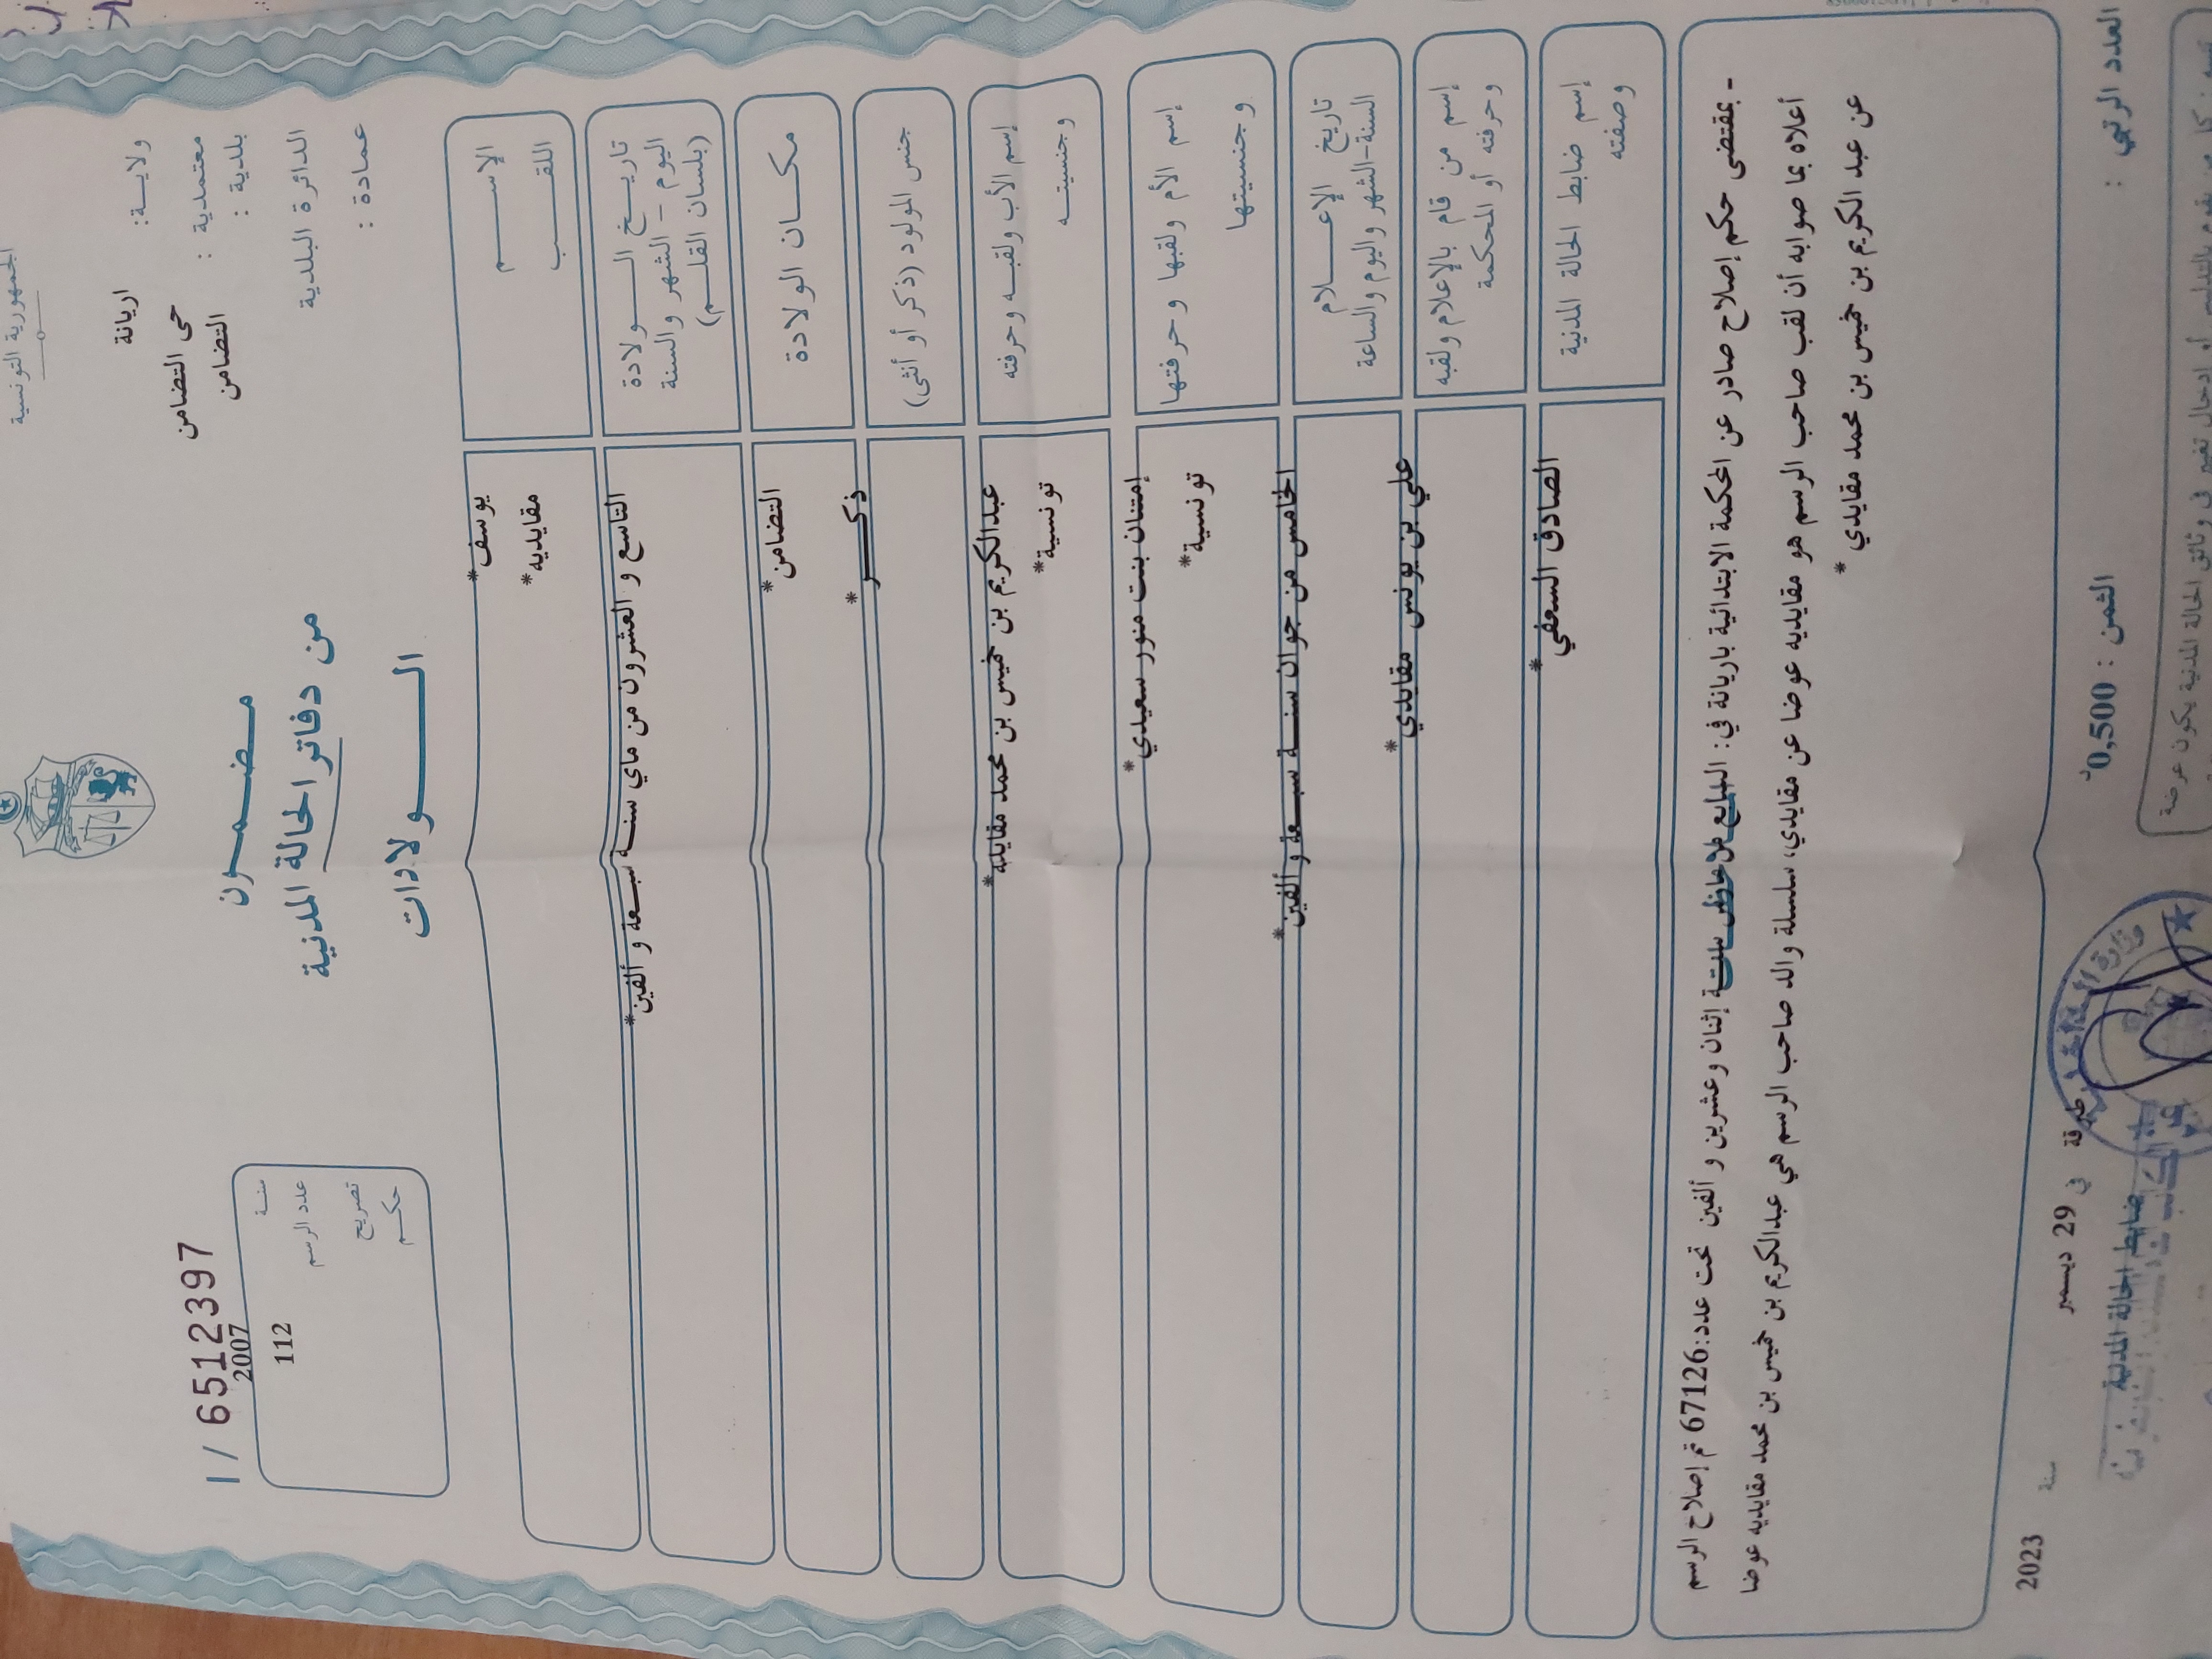 الجمهورية التونسية
ولايــة: اريانة
معتمدية : حى التضامن
بلدية : التضامن
الدائرة البلدية
عمادة :
مضمــون
من دفاتر الحالة المدنية
الــولادات
1/ 6512397
سنة 2007
عدد الرسم 112
تصريح
حكم
الإســـم
اللقـــب
يوسف*
مقايديه*
تاريــخ الـــولادة
اليوم – الشهر والسنة
(بلسان القلــم)
التاسع و العشرون من ماي سنـة سبـعة و ألفين*
مكــان الولادة
التضامن*
جنس المولود (ذكر أو أنثى)
ذكــر*
إسم الأب ولقبــه وحرفته
وجنسيتــه
عبدالكريم بن خميس بن محمد مقايله*
تونسية*
إسم الأم ولقبها وحرفتها
وجنسيتها
إمتنان بنت منور سعيدي*
تونسية*
تاريخ الإعـــلام
السنة-الشهر واليوم والساعة
الخامس من جوان سنـة سبـعة و ألفين*
إسم من قام بالإعلام ولقبه
وحرفته أو المحكمة
علي بن يونس مقايدي*
إسم ضابط الحالة المدنية
وصفته
الصادق السعفي*
- بمقتضى حكم إصلاح صادر عن المحكمة الابتدائية باريانة في: إثنان وعشرين و ألفين تحت عدد:67126 تم إصلاح الرسم
أعلاه بما صوابه أن لقب صاحب الرسم هو مقايديه عوضا عن مقايدي، سلسلة والد صاحب الرسم هي عبدالكريم بن خميس بن محمد مقايديه عوضا
عن عبد الكريم بن خميس بن محمد مقايدي*
العدد الرتبي :
الثمن : 0,500د
طبرقة في 29 ديسمبر سنة 2023
ضابط الحالة المدنية